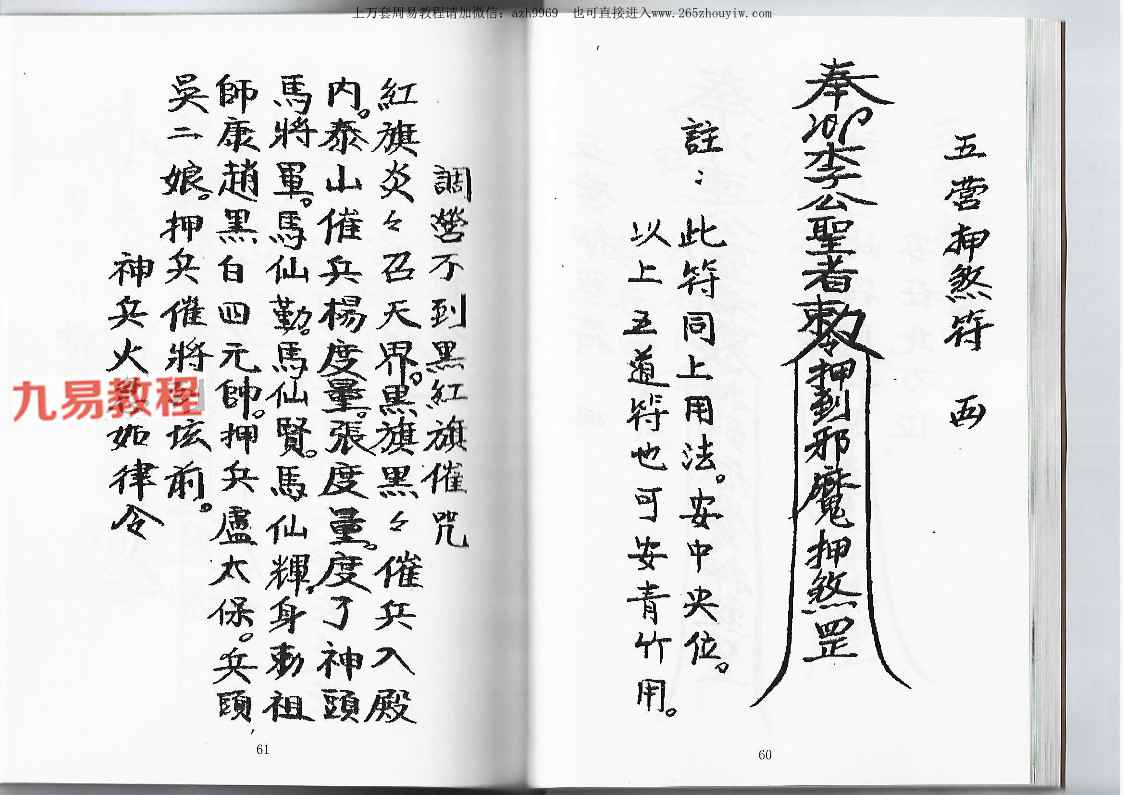 上万套周易教程请加微信：azh9969　也可直接进入www.265zhouyiw.com
五营押煞符　西
奉
李公聖者敕令押到邪魔押煞罡
註：此符同上用法。安中央位。
以上五道符也可安青竹用。
60
調營不到黑紅旗催咒
紅旗炎々召天界。黑旗黑々催兵入殿
内。泰山催兵楊度量。張度量。度了神頭
馬將軍。馬仙勤。馬仙賢。馬仙輝。身勅祖
師康趙黑白四元帥。押兵盧太保。兵頭
吳二娘。押兵催將到坛前。
神兵火急如律令
61
九易教程